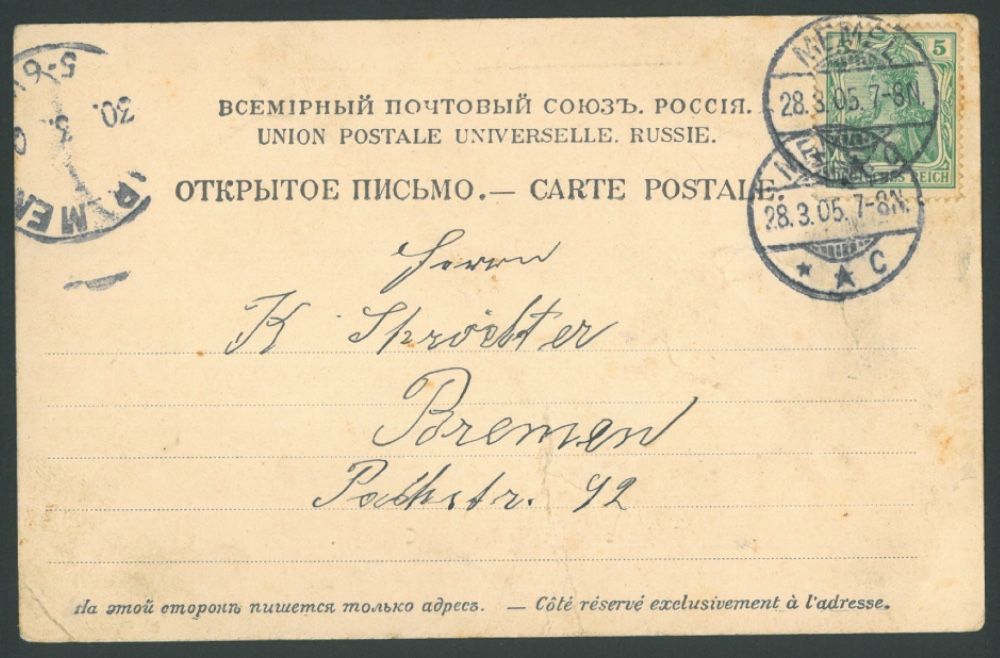 ВСЕМІРНЫЙ ПОЧТОВЫЙ СОЮЗЪ. РОССІЯ.
UNION POSTALE UNIVERSELLE. RUSSIE.
ОТКРЫТОЕ ПИСЬМО. — CARTE POSTALE.
MEMEL
28.3.05. 7-8N.
C
28.3.05. 7-8N.
* ★ C
5
REICH
5-6
30.
3.
BREMEN
Herrn
K
Bremen
42
На этой сторонѣ пишется только адресъ. — Côté réservé exclusivement à l'adresse.